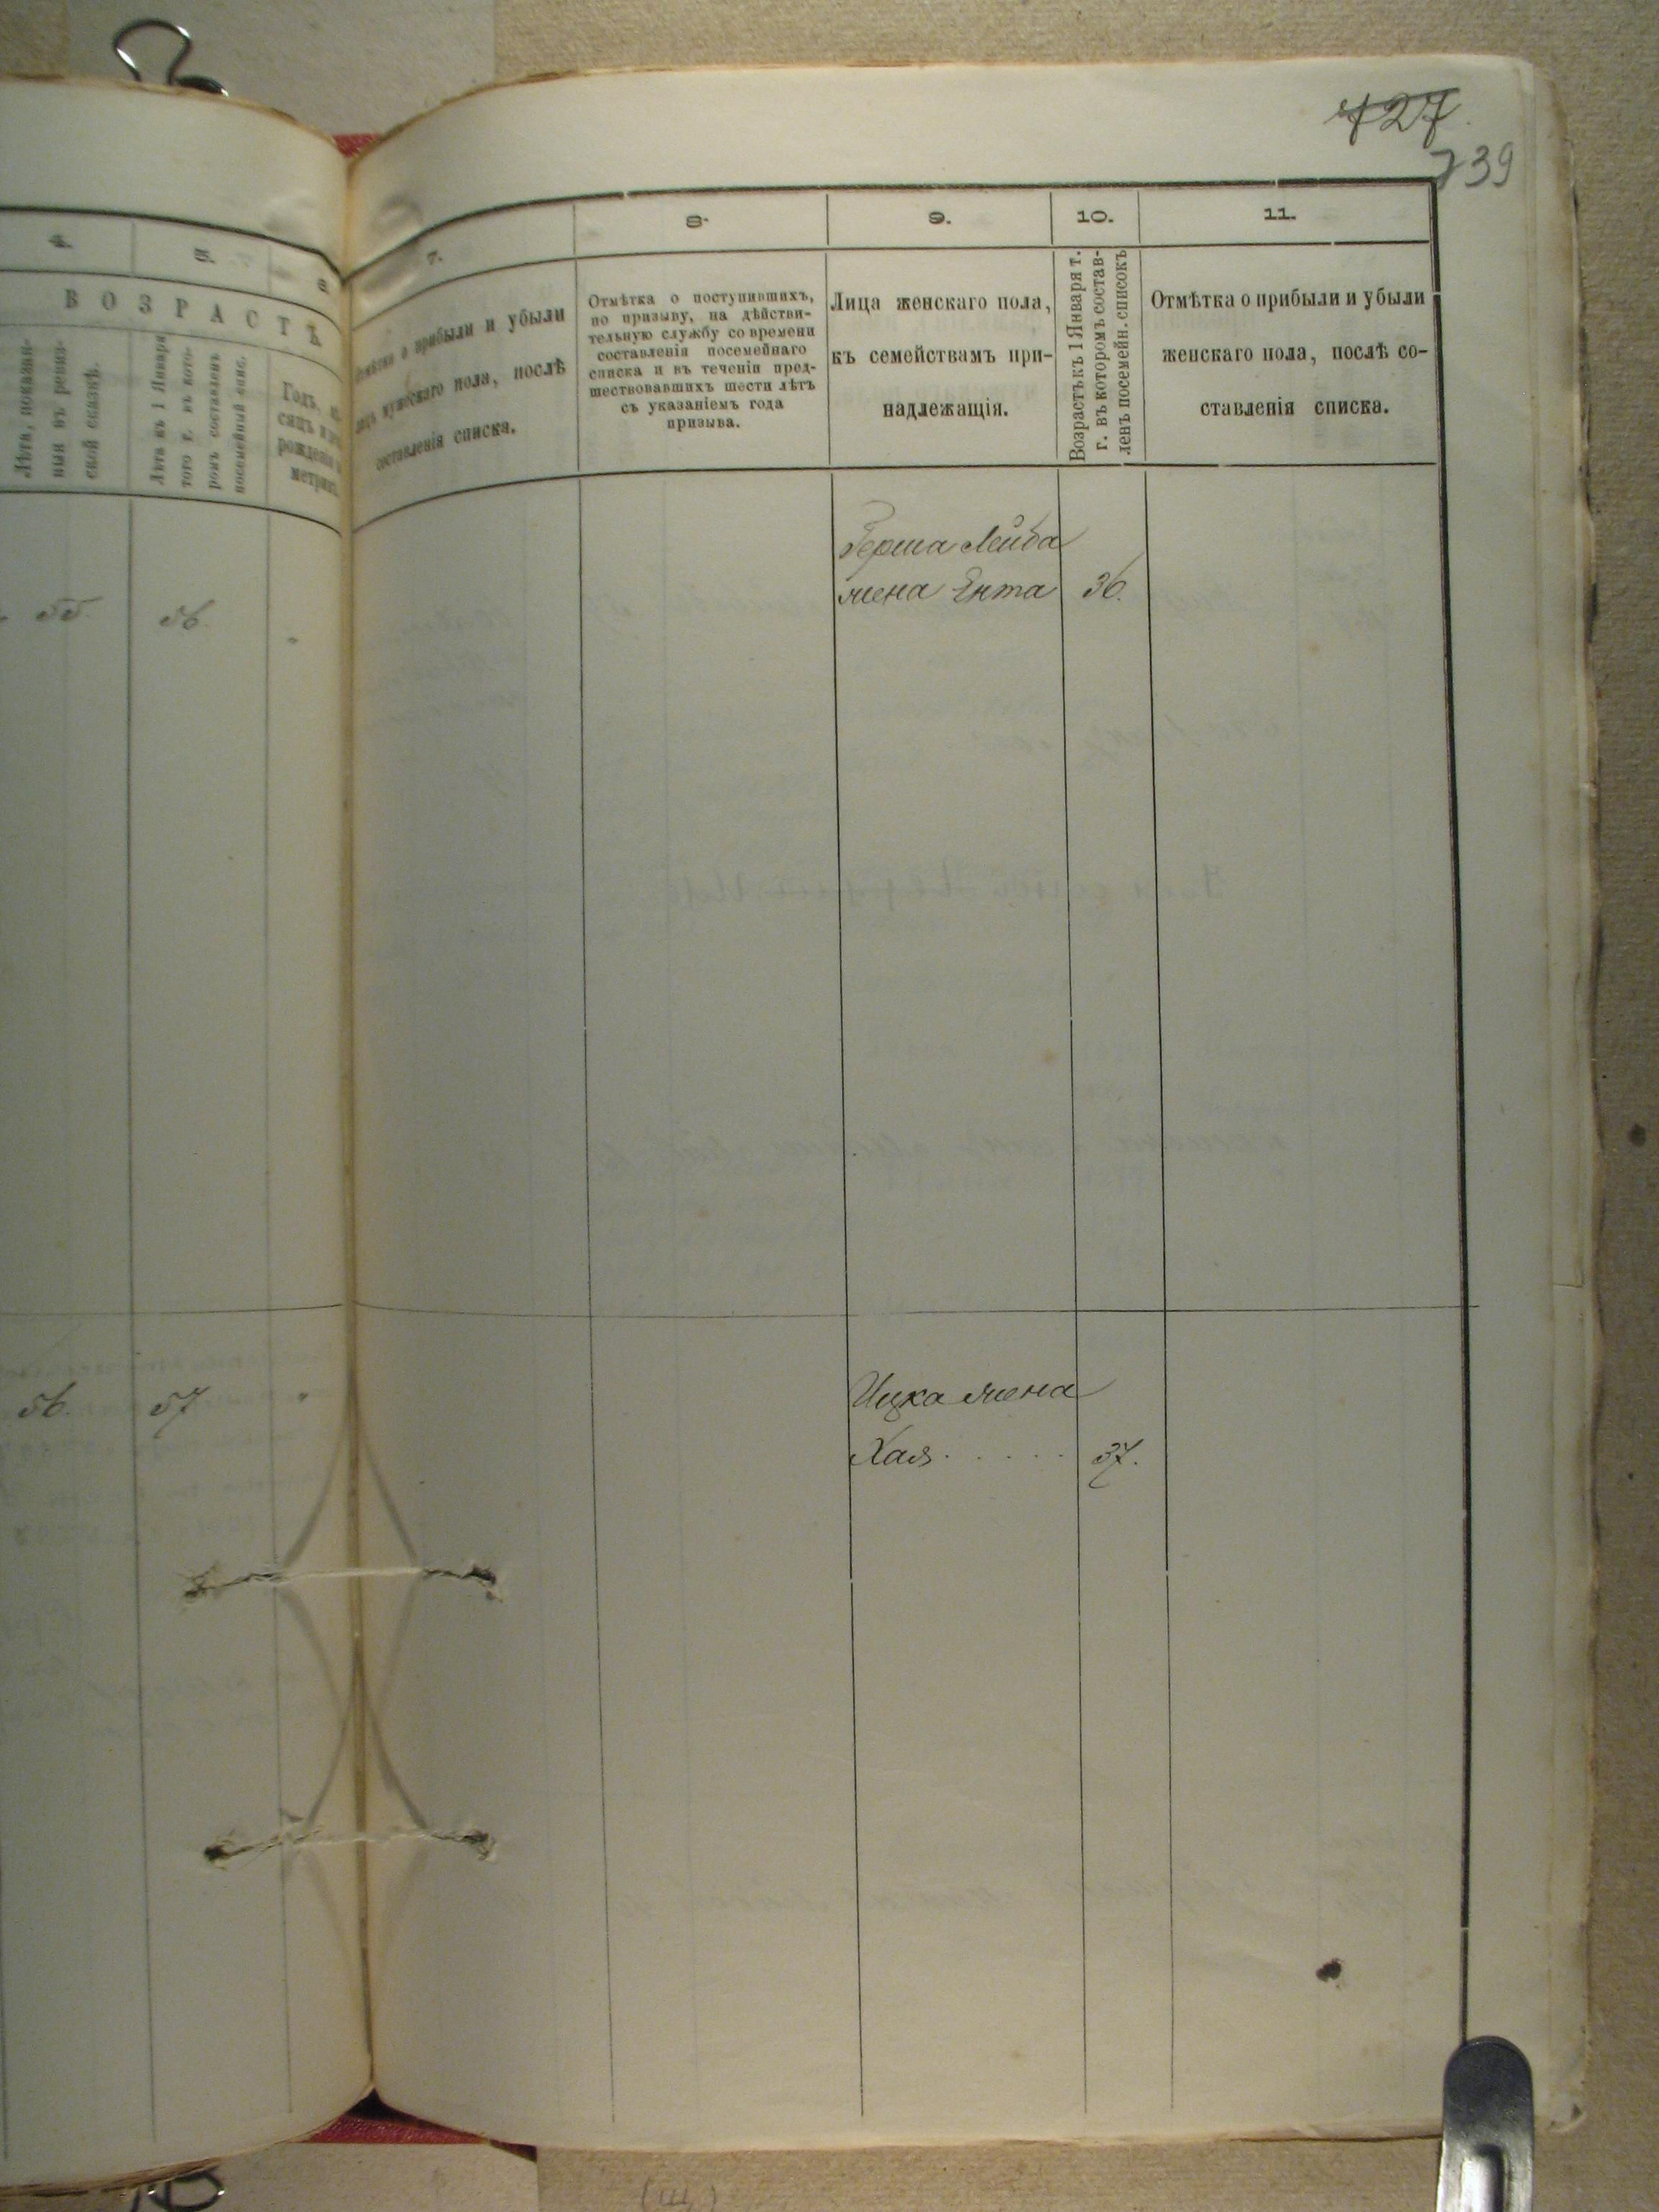 727.
739
4.
5.
6.
ВОЗРАСТЪ.
Лѣта, показан-
ныя въ ревиз-
ской сказкѣ.
Лѣта къ 1 Января
того г. въ кото-
ромъ составленъ
посемейный спис.
Годъ,
рожденія
55.
56.
56.
57
7.
о прибыли и убыли
мужескаго пола, послѣ
составленія списка.
8.
Отмѣтка о поступившихъ,
по призыву, на дѣйстви-
тельную службу со времени
составленія посемейнаго
списка и въ теченіи пред-
шествовавшихъ шести лѣтъ
съ указаніемъ года
призыва.
9.
Лица женскаго пола,
къ семействамъ при-
надлежащія.
10.
Возрастъ къ 1 Января т.
г. въ которомъ состав-
ленъ посемейн. списокъ
11.
Отмѣтка о прибыли и убыли
женскаго пола, послѣ со-
ставленія списка.
Герша Лейба
жена Ента 36.
Ицка жена
Хая . . . . . 37.